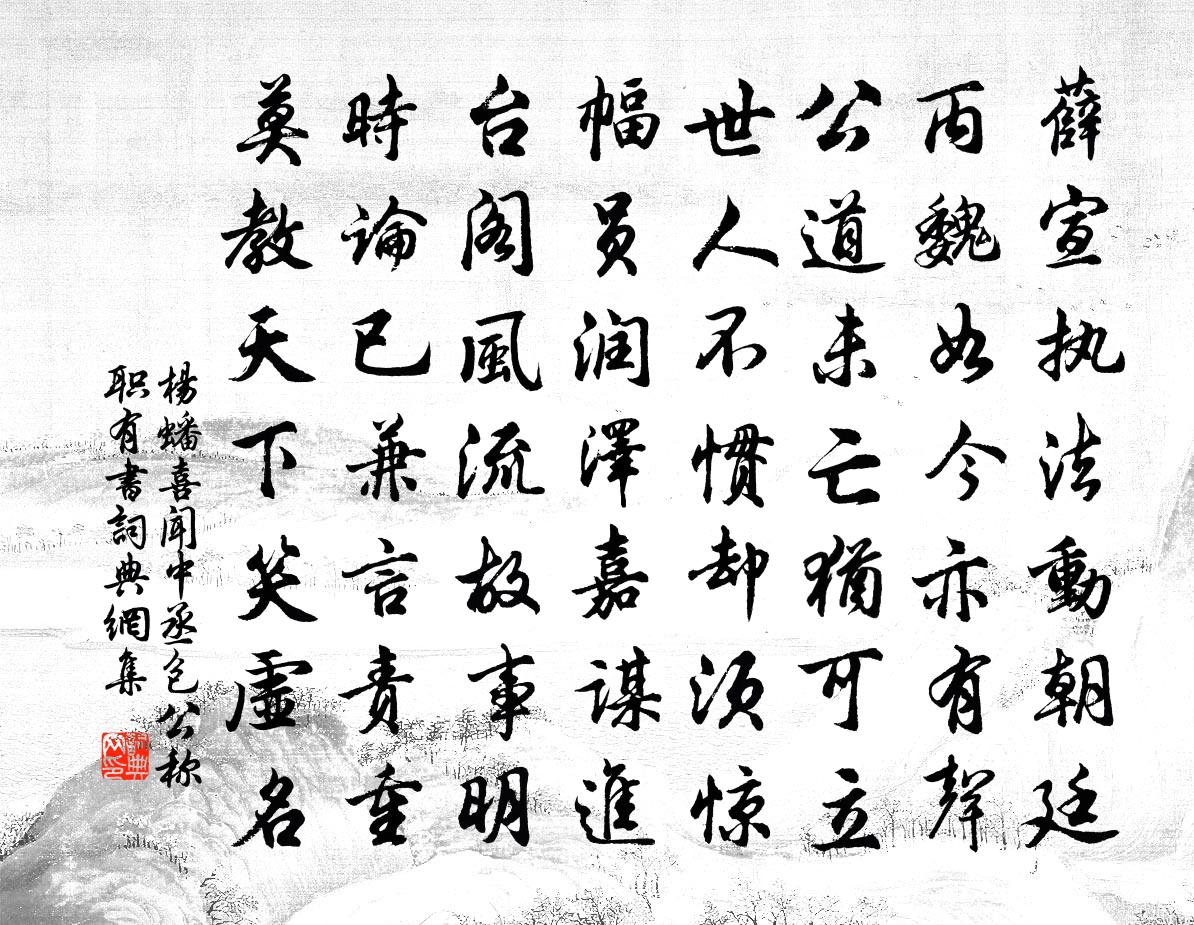 薛宣执法動朝廷
丙魏如今亦有聲
公道未亡猶可立
世人不慣却須惊
幅员润澤嘉謀進
台阁風流故事明
時論已兼言责重
莫教天下笑虛名
楊蟠喜闻中丞包公称
职有書詞典網集
詞典